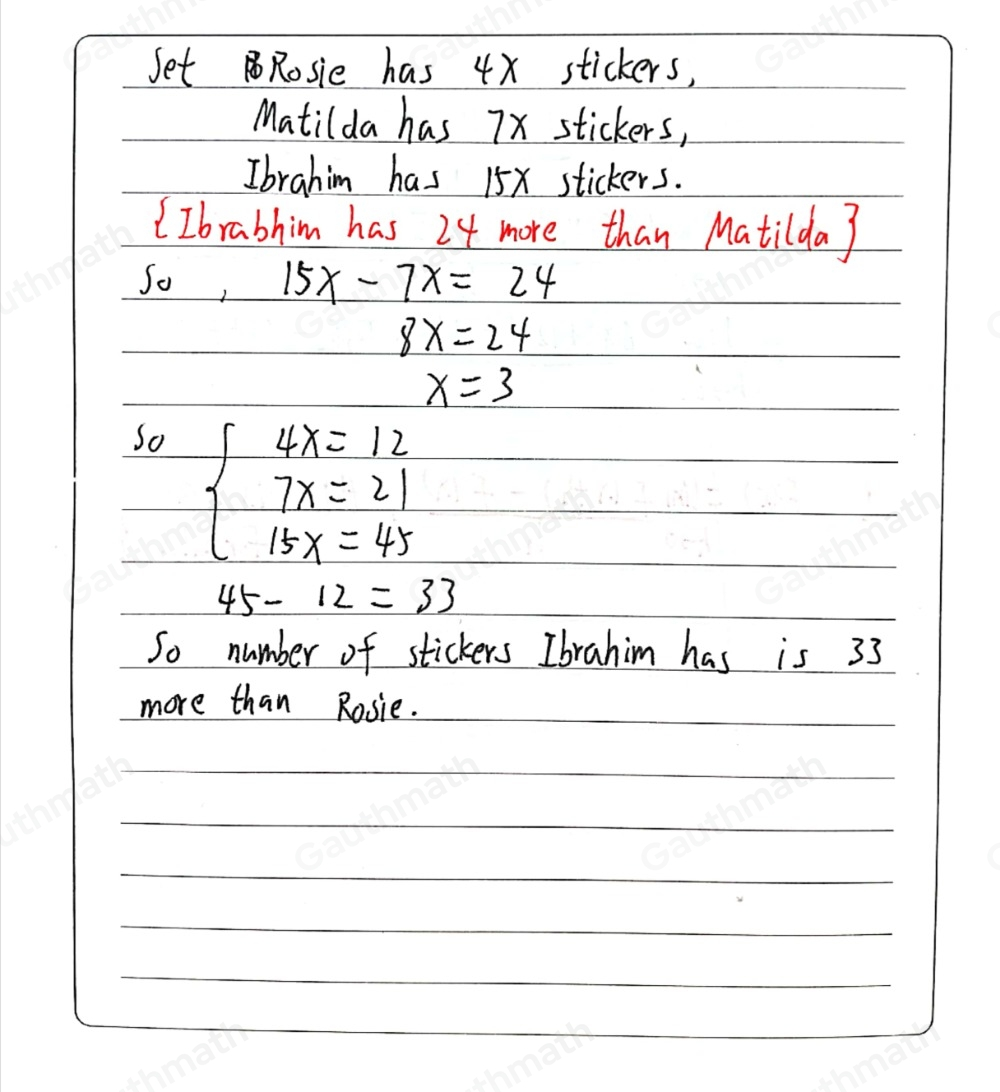 Set Rosie has 4x stickers,
Matilda has 7x stickers,
Ibrahim has 15x stickers.
{Ibrabhim has 24 more than Matilda}
So, 15x - 7x = 24
8x = 24
x = 3
So { 4x = 12
7x = 21
15x = 45
45 - 12 = 33
So number of stickers Ibrahim has is 33
more than Rosie.
Gauthmath